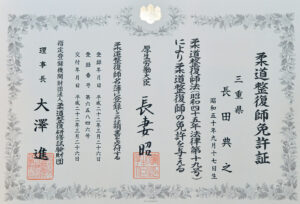 柔道整復師免許証
三重県
長田典之
昭和五十年九月十七日生
柔道整復師法(昭和四十五年法律第十九号)
により柔道整復師の免許を与える
厚生労働大臣 長妻昭
柔道整復師名簿に登録し此の証書を交付する
登録年月日 平成二十二年三月二十六日
登録番号 第六五八四六号
交付年月日 平成二十二年三月二十六日
指定登録機関財団法人柔道整復研修試験財団
理事長 大澤進